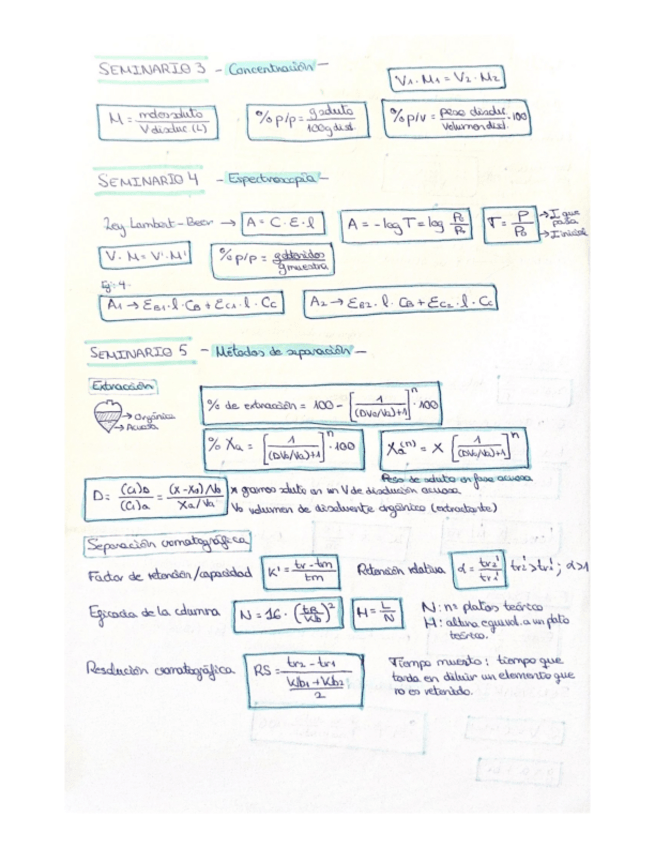 SEMINARIO 3 - Concentración -
V₁·M₁ = V₂·M₂
M = moles soluto / V disoluc (L)
% p/p = g soluto / 100 g disol.
% p/v = peso disoluc / Volumen disol. · 100
SEMINARIO 4 - Espectroscopía -
Ley Lambert-Beer → A = C·E·l
A = -log T = log P₀/P₀
T = P/P₀ → I que pasa → I inicial
V·M = V'·M'
% p/p = g obtenidos / g muestra
Ej: 4.
A₁ → EB₁·l·CB + EC₁·l·CC
A₂ → EB₂·l·CB + EC₂·l·CC
SEMINARIO 5 - Métodos de separación -
Extracción
→ Orgánica
→ Acuosa
% de extracción = 100 - [1 / ((DV₀/Va)+1)]ⁿ · 100
% Xa = [1 / ((DV₀/Va)+1)]ⁿ · 100
Xa⁽ⁿ⁾ = X [1 / ((DV₀/Va)+1)]ⁿ
Peso de soluto en fase acuosa
D = (C₁)o / (C₁)a = (X-Xa)/V₀ / Xa/Va
x gramos soluto en un V de disolución acuosa
V₀ volumen de disolvente orgánico (extractante)
Separación cromatográfica
Factor de retención/capacidad K' = tr - tm / tm
Retención relativa α = tr₂' / tr₁' tr₂' > tr₁' ; α>1
Eficacia de la columna N = 16 · (tR/Wb)²
H = L/N
N: nº platos teórico
H: altura equival. a un plato
teórico.
Resolución cromatográfica RS = tr₂ - tr₁ / (Wb₁ + Wb₂ / 2)
Tiempo muerto: tiempo que
tarda en diluir un elemento que
no es retenido.